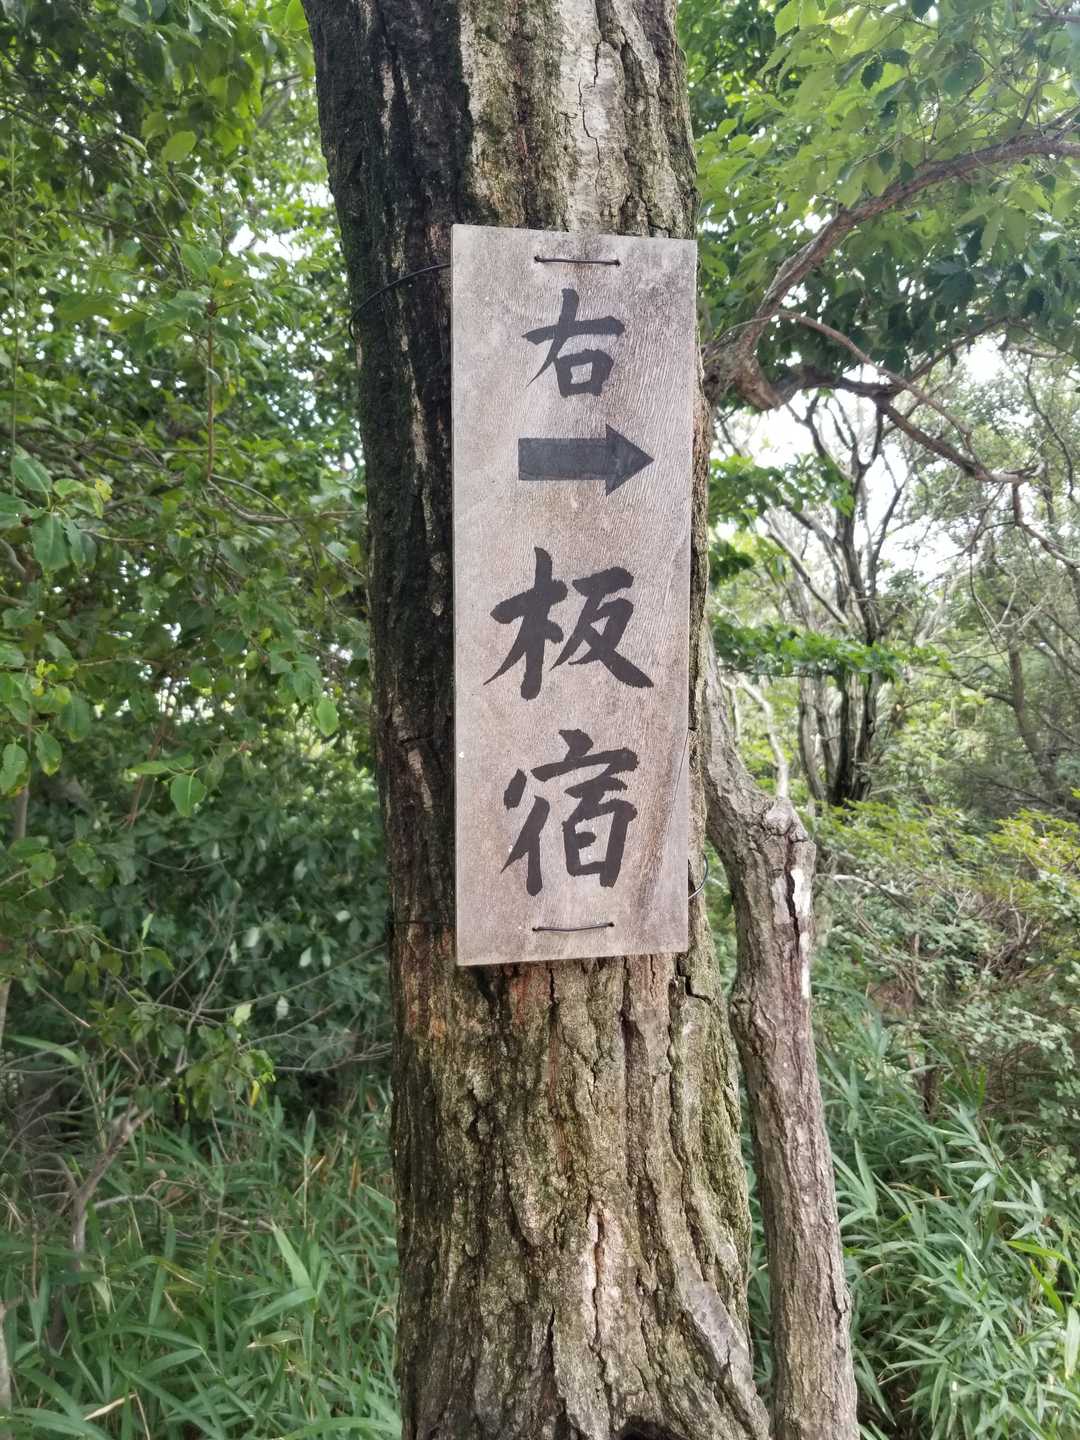 右
→
板宿